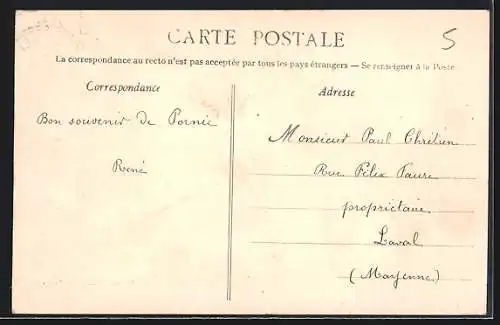 CARTE POSTALE
5
La correspondance au recto n'est pas acceptée par tous les pays étrangers — Se renseigner à la Poste
Correspondance
Adresse
Bon souvenir de Pornic
René
Monsieur Paul Chrétien
Rue Félix Faure
propriétaire
Laval
(Mayenne)